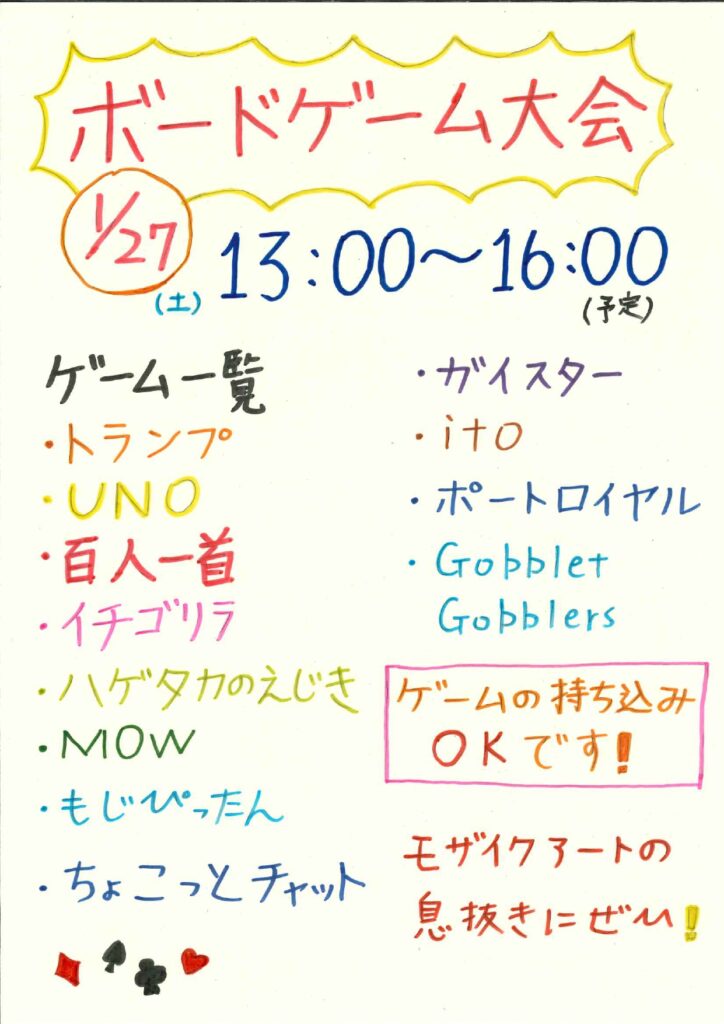 ボードゲーム大会
1/27
(土)
13:00〜16:00
(予定)
ゲーム一覧
・トランプ
・UNO
・百人一首
・イチゴリラ
・ハゲタカのえじき
・MOW
・もじぴったん
・ちょこっとチャット
・ガイスター
・ito
・ポートロイヤル
・Gobblet
Gobblers
ゲームの持ち込み
OKです!
モザイクアートの
息抜きにぜひ!